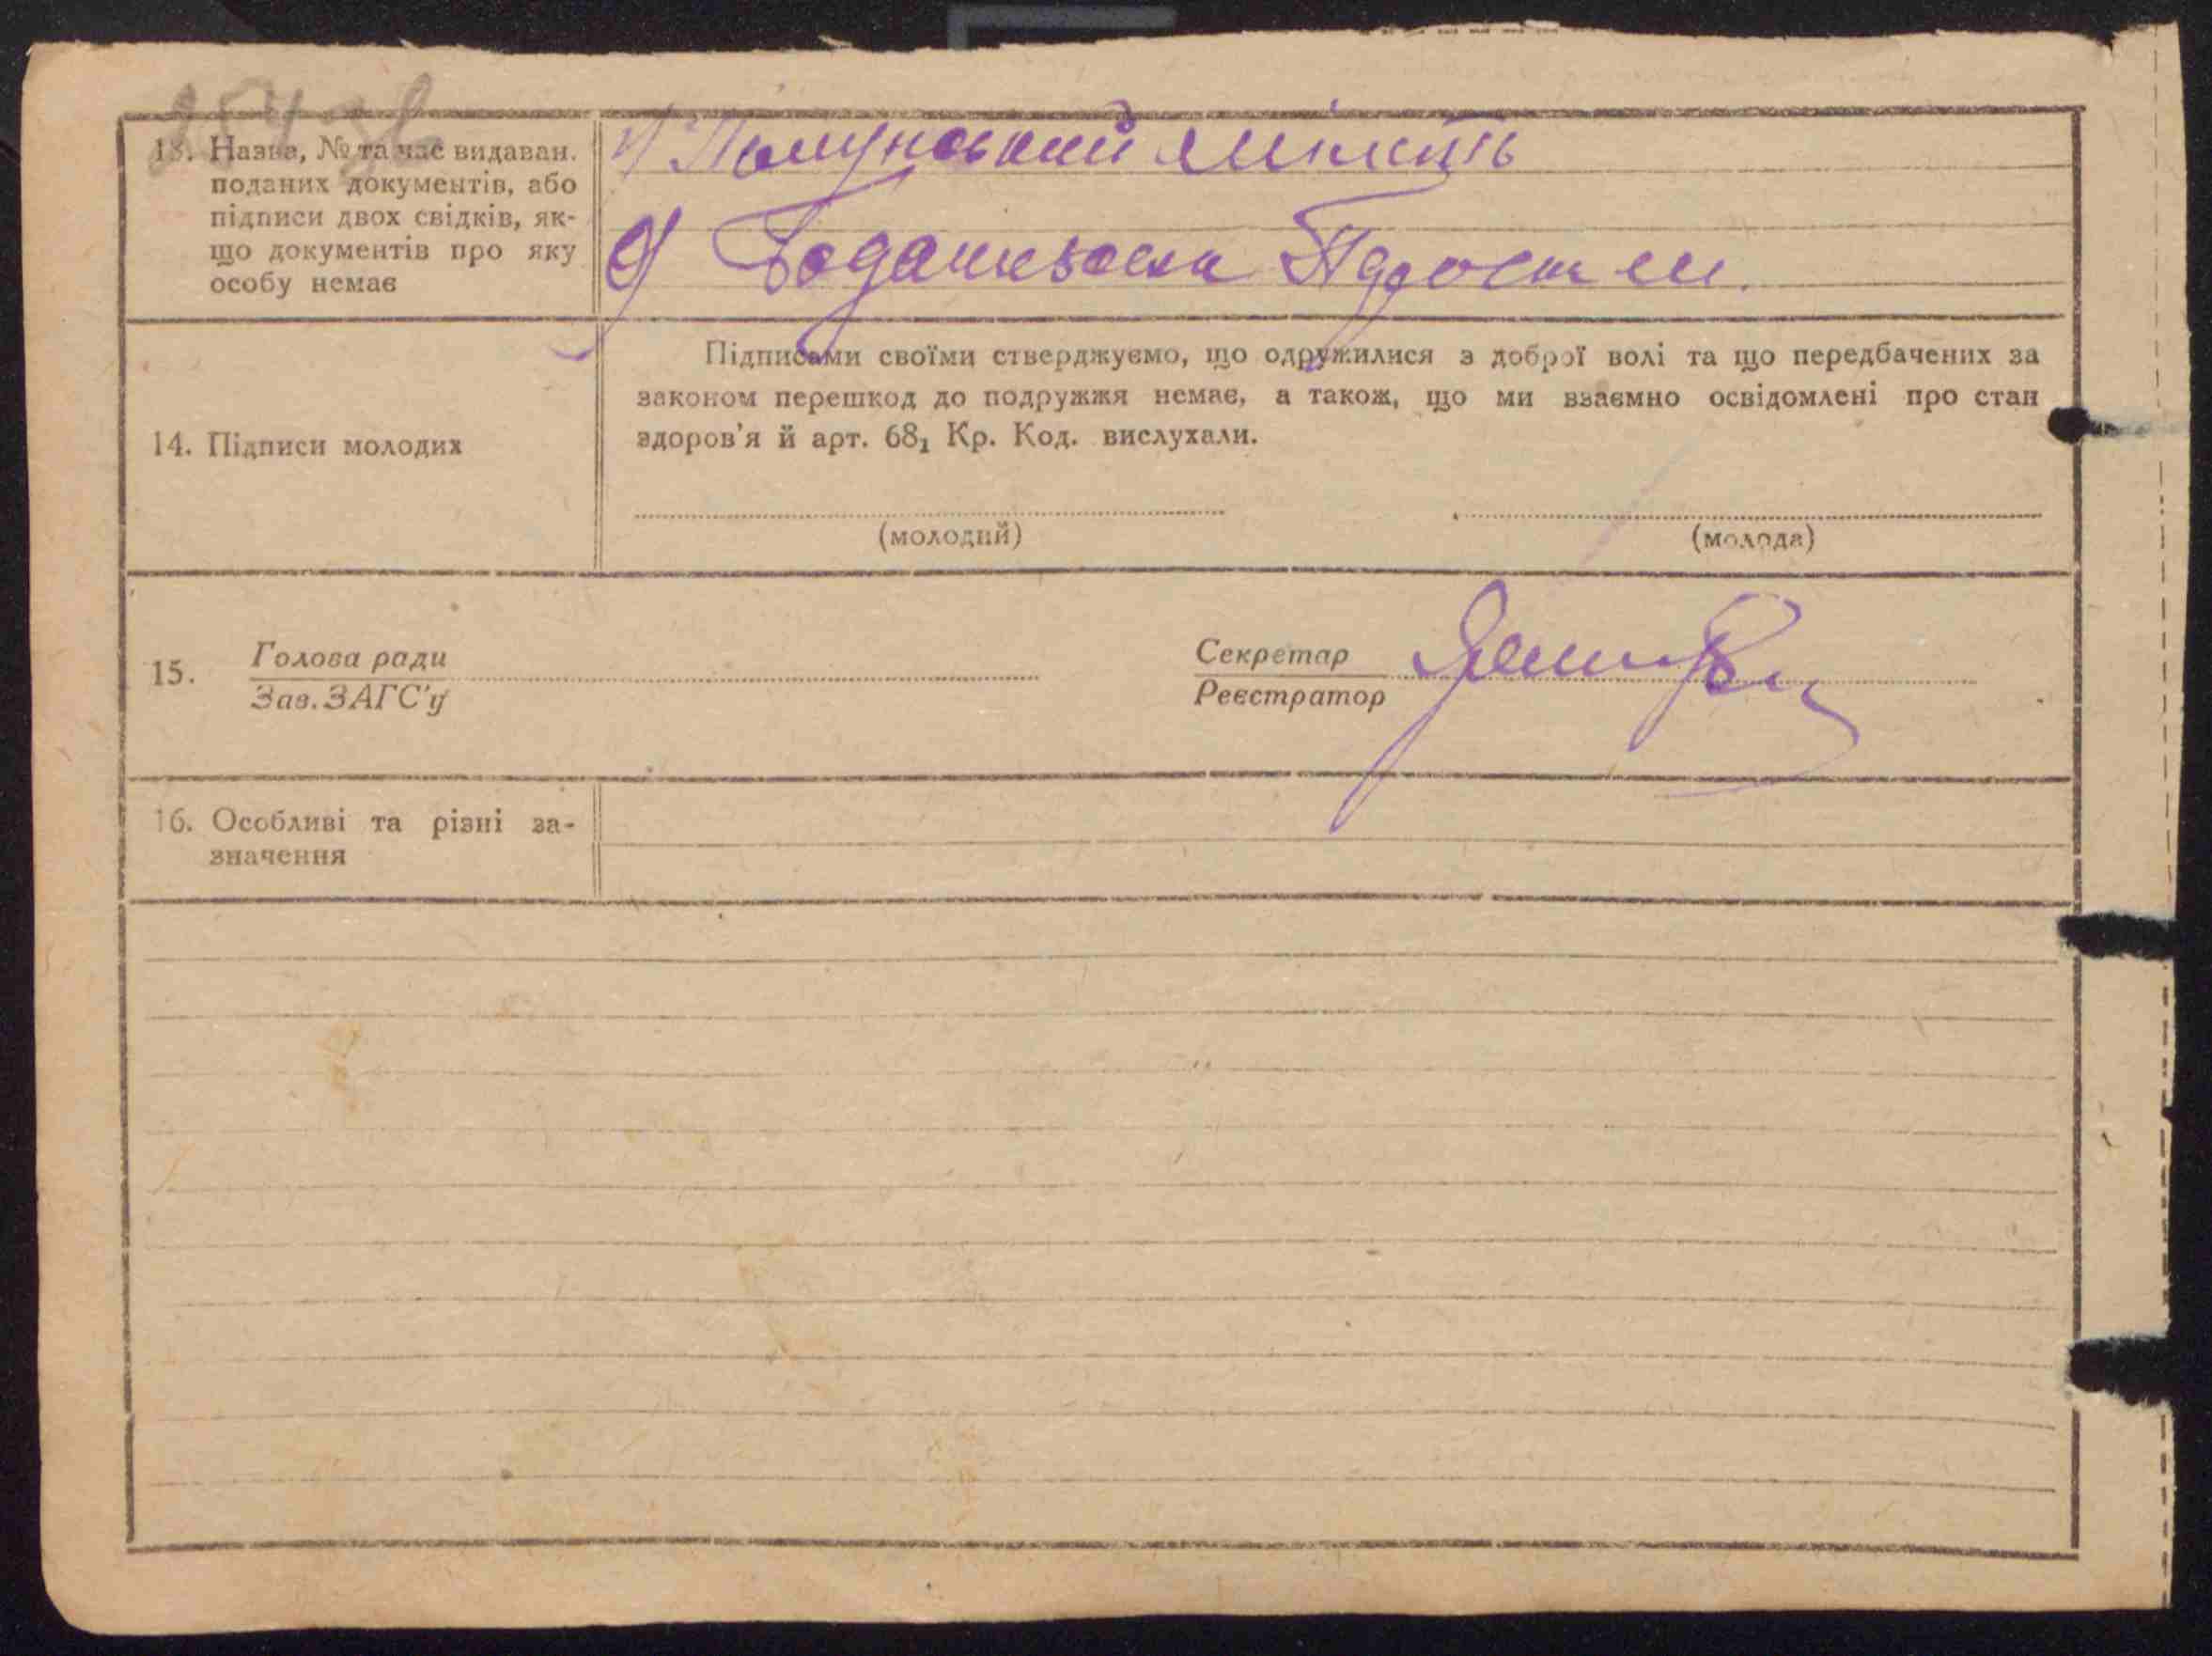 254 зв
13. Назва, № та час видаван.
поданих документів, або
підписи двох свідків, як-
що документів про яку
особу немає
1)
2)
14. Підписи молодих
Підписами своїми стверджуємо, що одружилися з доброї волі та що передбачених за
законом перешкод до подружжя немає, а також, що ми взаємно освідомлені про стан
здоров'я й арт. 68₁ Кр. Код. вислухали.
(молодий)
(молода)
15. Голова ради
Зав. ЗАГС'у
Секретар
Реєстратор
16. Особливі та різні за-
значення